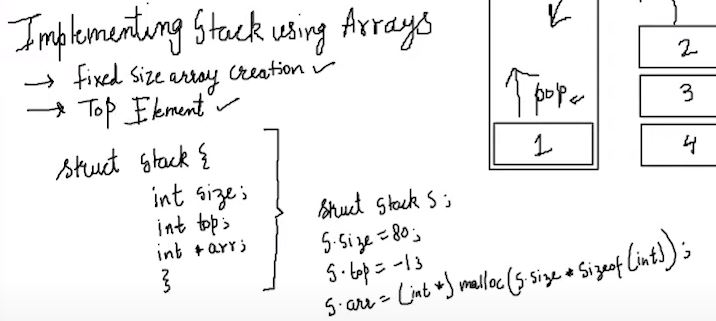 Implementing Stack using Arrays
→ Fixed size array creation ✓
→ Top Element ✓
struct stack {
int size;
int top;
int * arr;
}
struct stack S;
S.size = 80;
S.top = -1;
S.arr = (int *) malloc(S.size * sizeof(int));
pop
1
2
3
4